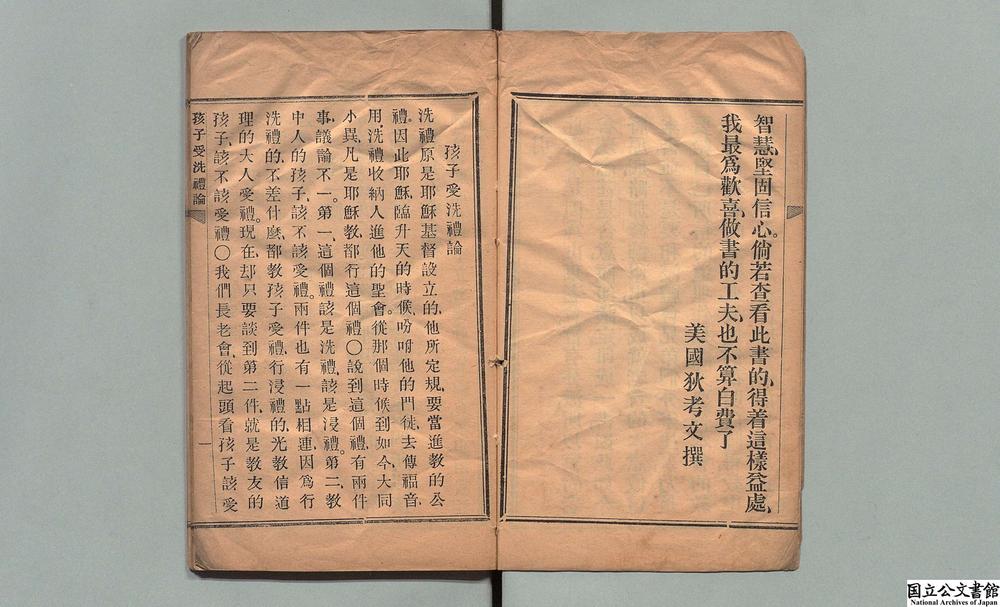 智慧、堅固信心。倘若查看此書的、得着這樣益處、
我最爲歡喜、做書的工夫、也不算白費了
美國狄考文撰
孩子受洗禮論
洗禮原是耶穌基督設立的、他所定規、要當進教的公
禮。因此耶穌、臨升天的時候、吩咐他的門徒、去傳福音、
用洗禮收納人進他的聖會。從那個時候、到如今、大同
小異、凡是耶穌教、都行這個禮〇說到這個禮、有兩件
事、議論不一。第一、這個禮該是洗禮、該是浸禮。第二、教
中人的孩子、該不該受禮。兩件也有一點相連、因爲行
洗禮的、不差什麽、都教孩子受禮、行浸禮的、光教信道
理的大人受禮。現在却只要談到第二件、就是教友的
孩子、該不該受禮〇我們長老會、從起頭看孩子該受
孩子受洗禮論
一
国立公文書館
National Archives of Japan